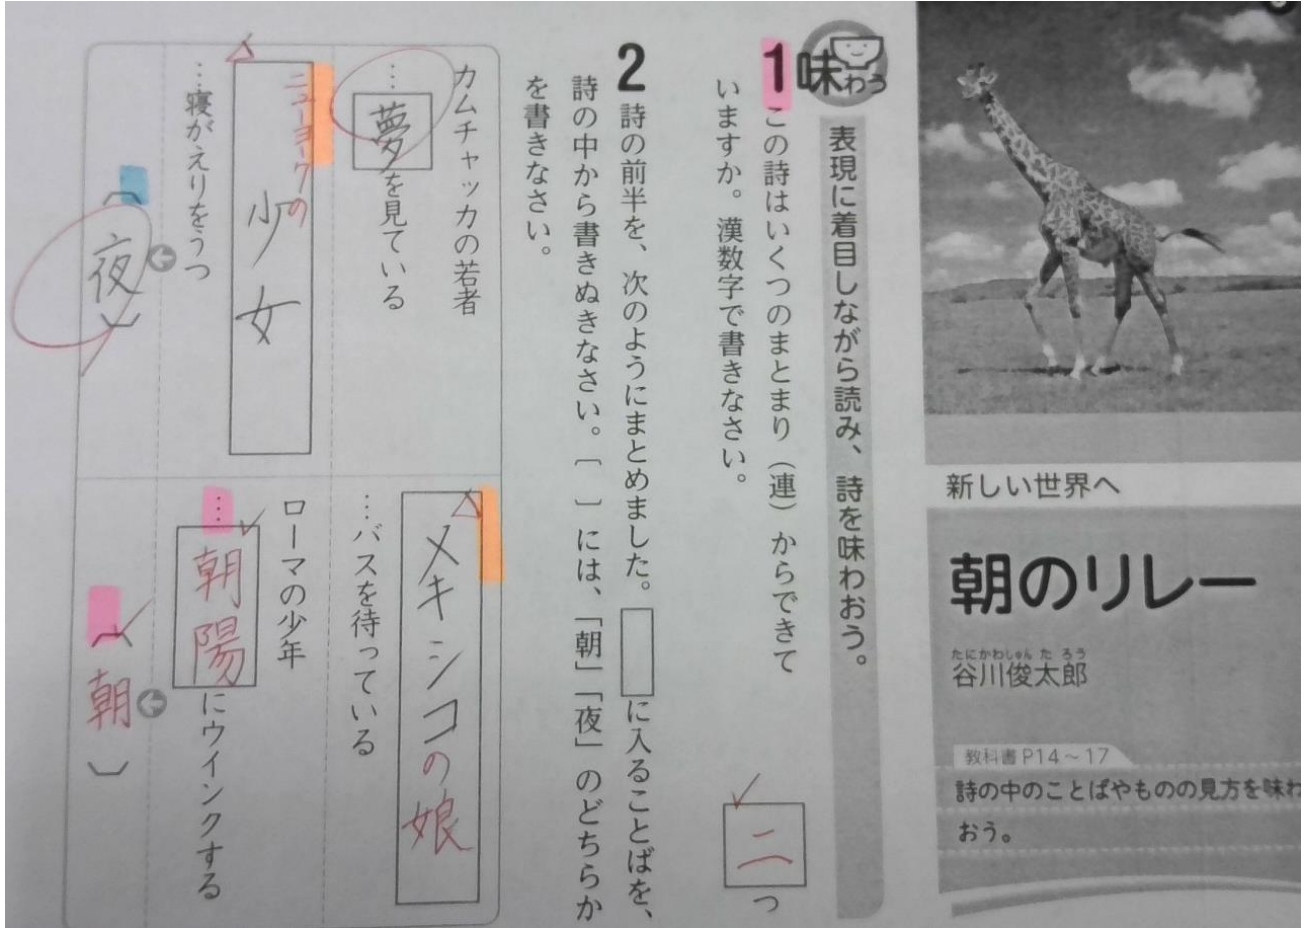 新しい世界へ
朝のリレー
たにかわしゅんたろう
谷川俊太郎
教科書P14～17
詩の中のことばやものの見方を味わ
おう。
味わう
表現に着目しながら読み、詩を味わおう。
1 この詩はいくつのまとまり（連）からできて
いますか。漢数字で書きなさい。
二つ
2 詩の前半を、次のようにまとめました。□に入ることばを、
詩の中から書きぬきなさい。〔 〕には、「朝」「夜」のどちらか
を書きなさい。
カムチャッカの若者
…夢を見ている
ニューヨークの少女
…寝がえりをうつ
〔夜〕
メキシコの娘
…バスを待っている
ローマの少年
…朝陽にウインクする
〔朝〕